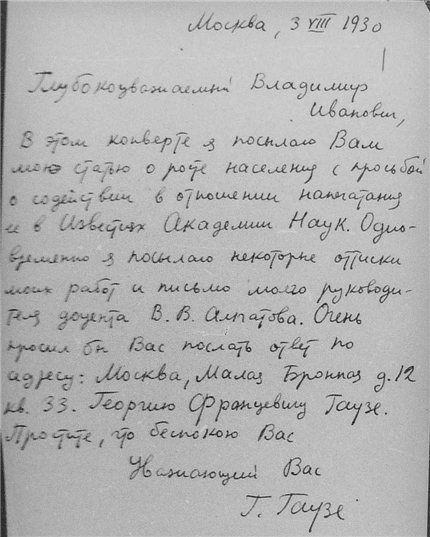 Москва, 3 VIII 1930
Глубокоуважаемый Владимир
Иванович,
В этом конверте я посылаю Вам
мою статью о росте населения с просьбой
о содействии в отношении напечатания
ее в Известиях Академии Наук. Одно-
временно я посылаю некоторые оттиски
моих работ и письмо моего руководи-
теля доцента В. В. Алпатова. Очень
просил бы Вас послать ответ по
адресу: Москва, Малая Бронная д. 12
кв. 33. Георгию Францевичу Гаузе.
Простите, что беспокою Вас
Уважающий Вас
Г. Гаузе